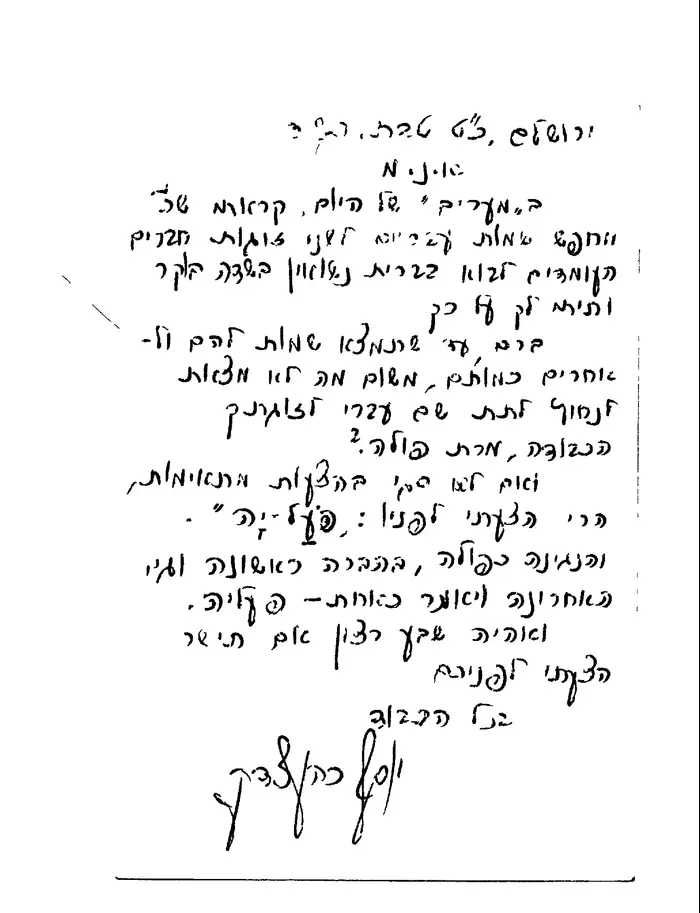 ירושלם, כ"ט טבת,
א.נ.מ
ב"מעריב" של היום, קראתי
מחפש שמות עבריים לשני זוגות חברים
העומדים לבוא בברית נשואין בשדה בוקר
על כך
ברם, עד שתמצא שמות להם ול-
אחרים כמותם, משום מה לא מצאת
לנחוץ לתת שם עברי לזוגתך
הכבודה, מרת פולה?
ואם לא בהצעות מתאימות,
הרי הצעתי לפניו: "פָּעַל-יָה".
והנגינה כפולה, בהברה ראשונה
האחרונה ויאמר כאחת – פעליה.
ואהיה שבע רצון אם תישר
הצעתי לפניכם
בכל הכבוד
יוסף כהן צדק